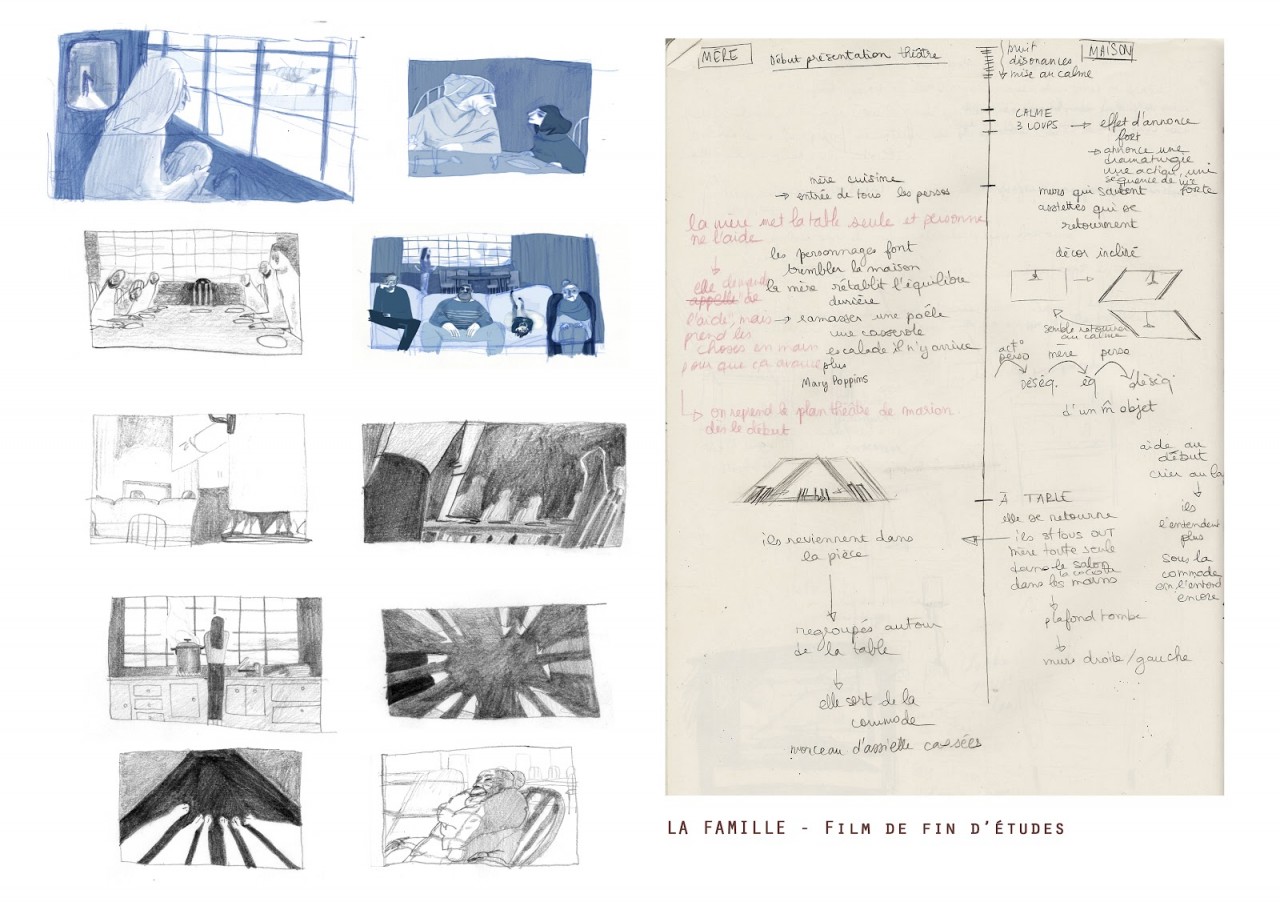 MÈRE
Début présentation théâtre
mère cuisine
→ entrée de tous les persos
la mère met la table seule et personne
ne l'aide
↓
elle demande
appelle de
l'aide, mais
prend les
choses en main
pour que ça avance
↳ on reprend le plan théâtre de marion
dès le début
les personnages font
trembler la maison
la mère rétablit l'équilibre
derrière
→ ramasser une poêle
une casserole
escalade il n'y arrive
plus
Mary Poppins
ils reviennent dans
la pièce
↓
regroupés autour
de la table
↓
elle sort de la
commode
morceau d'assiette cassées
MAISON
bruit
disonances
mise au calme
CALME
3 LOUPS → effet d'annonce
fort
→ annonce une
dramaturgie
une action, une
séquence de
forte
murs qui sautent
assiettes qui se
retournent
décor incliné
semble retourner
au calme
act°
perso mère perso
DÉSÉQ. éq déséq.
d'un m̂ objet
À TABLE
elle se retourne
ils st tous OUT
mère toute seule
dans le salon
la cocotte
dans les mains
↓
plafond tombe
↓
murs droite/gauche
aide au
début
crier au
↓
ils
l'entendent
plus
sous la
commode
on l'entend
encore
LA FAMILLE - FILM DE FIN D'ÉTUDES